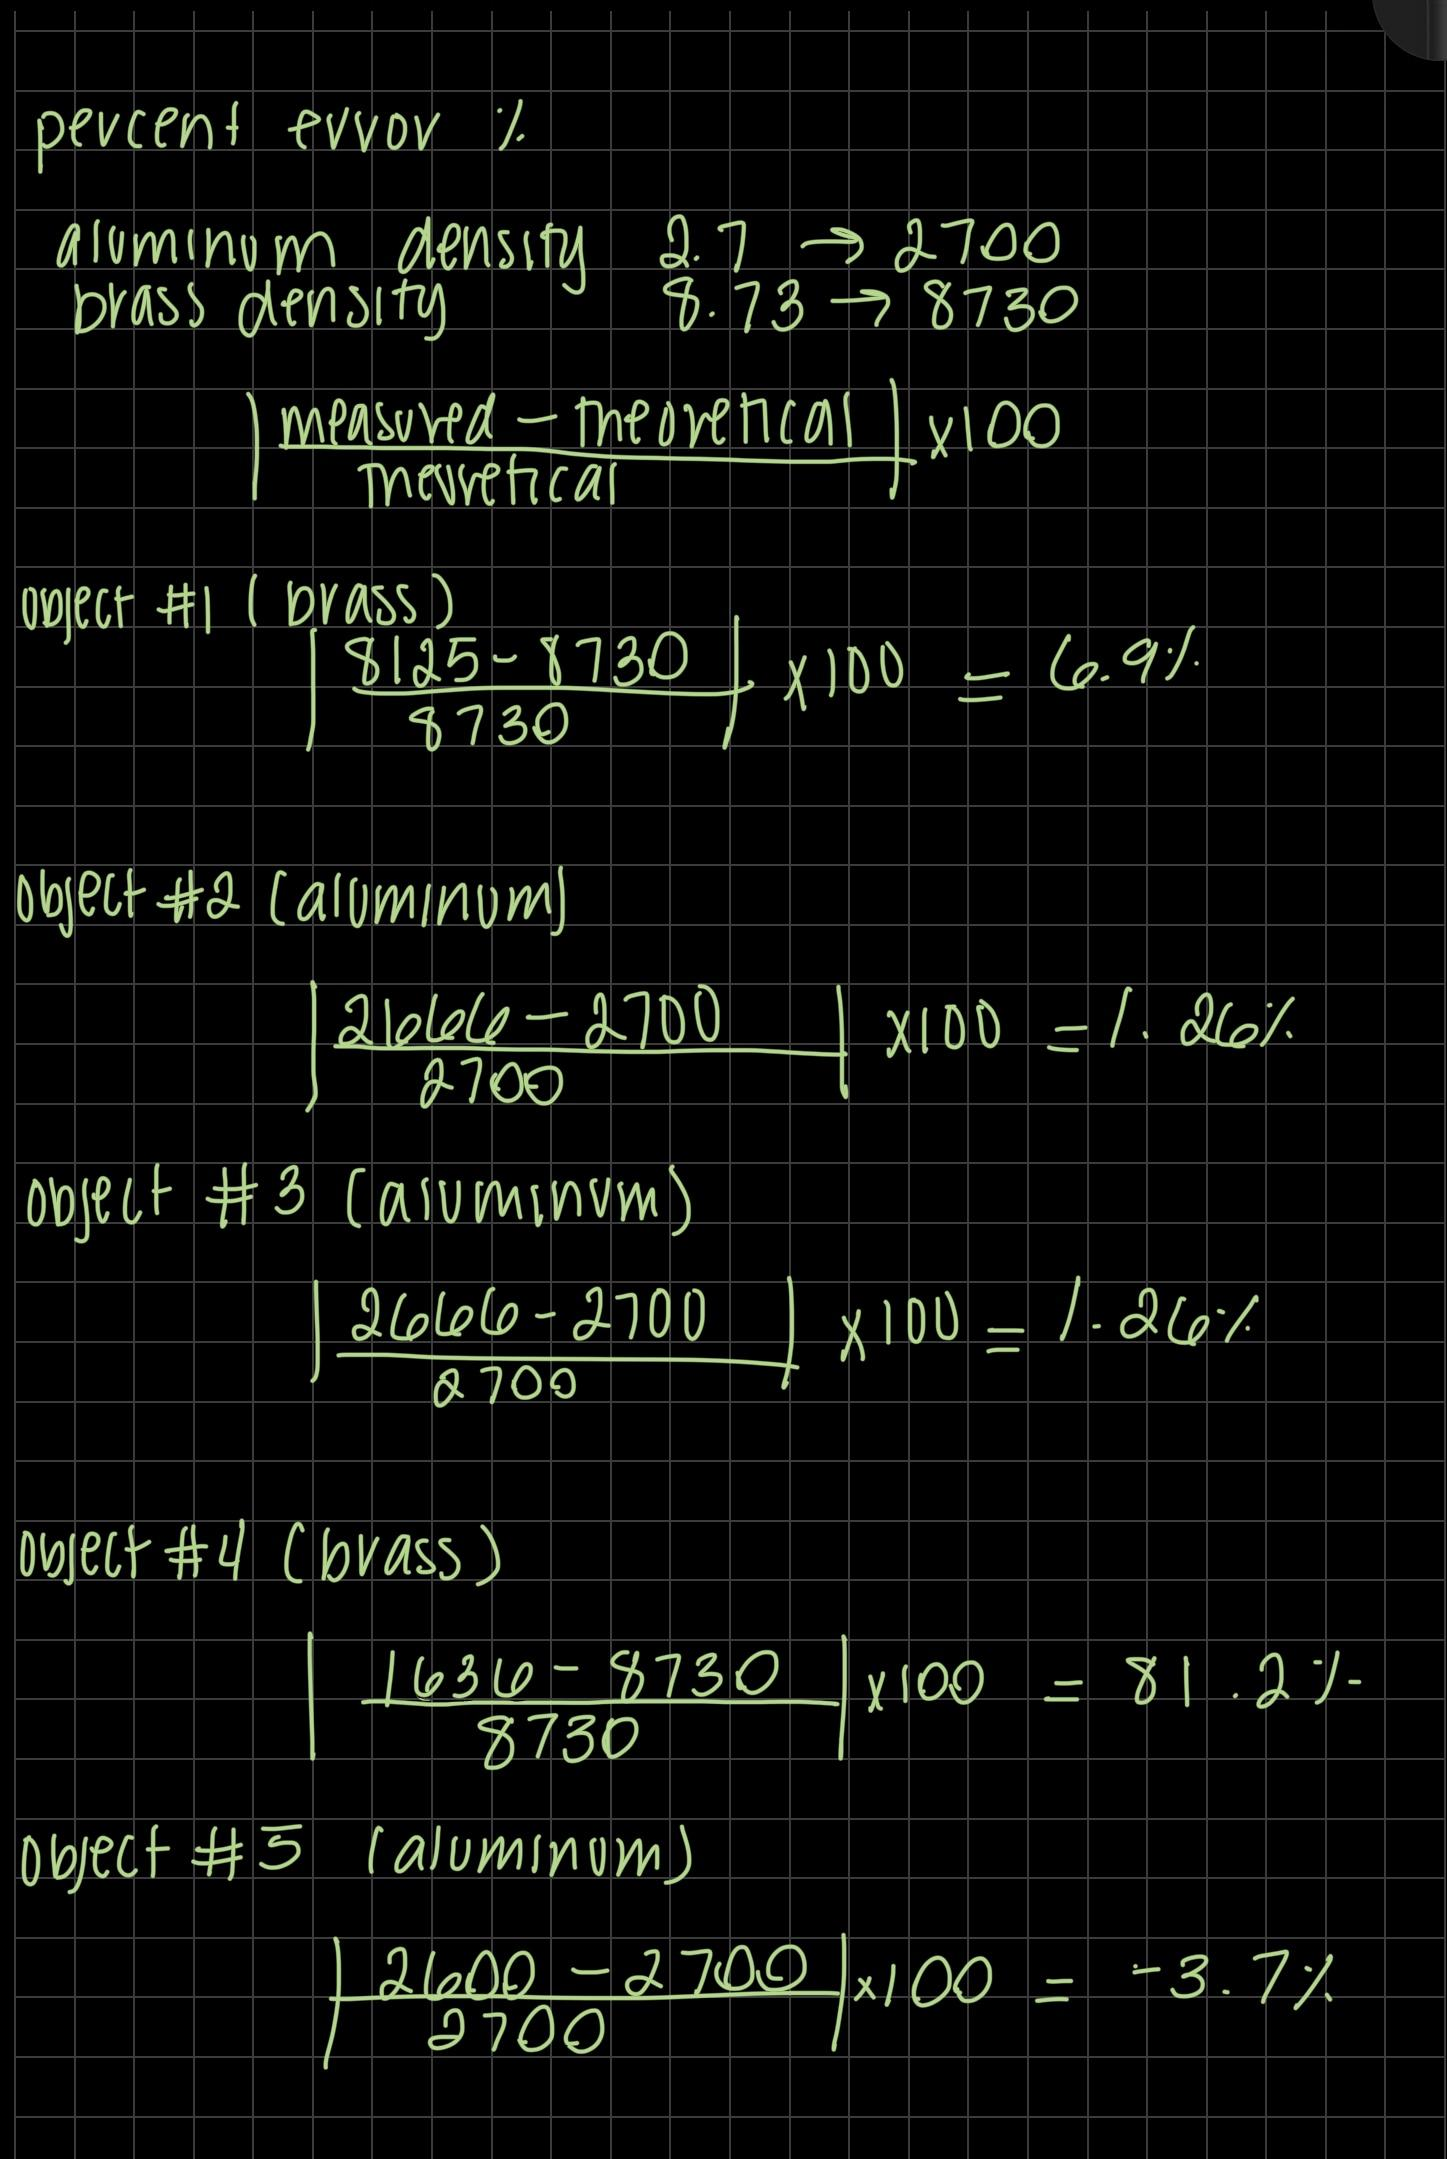 percent error %
aluminum density 2.7 → 2700
brass density 8.73 → 8730
| measured - theoretical | x100
theoretical
object #1 (brass)
| 8125 - 8730 | x100 = 6.9%
8730
object #2 (aluminum)
| 2666 - 2700 | x100 = 1.26%
2700
object #3 (aluminum)
| 2666 - 2700 | x100 = 1.26%
2700
object #4 (brass)
| 1636 - 8730 | x100 = 81.2%
8730
object #5 (aluminum)
| 2600 - 2700 | x100 = -3.7%
2700